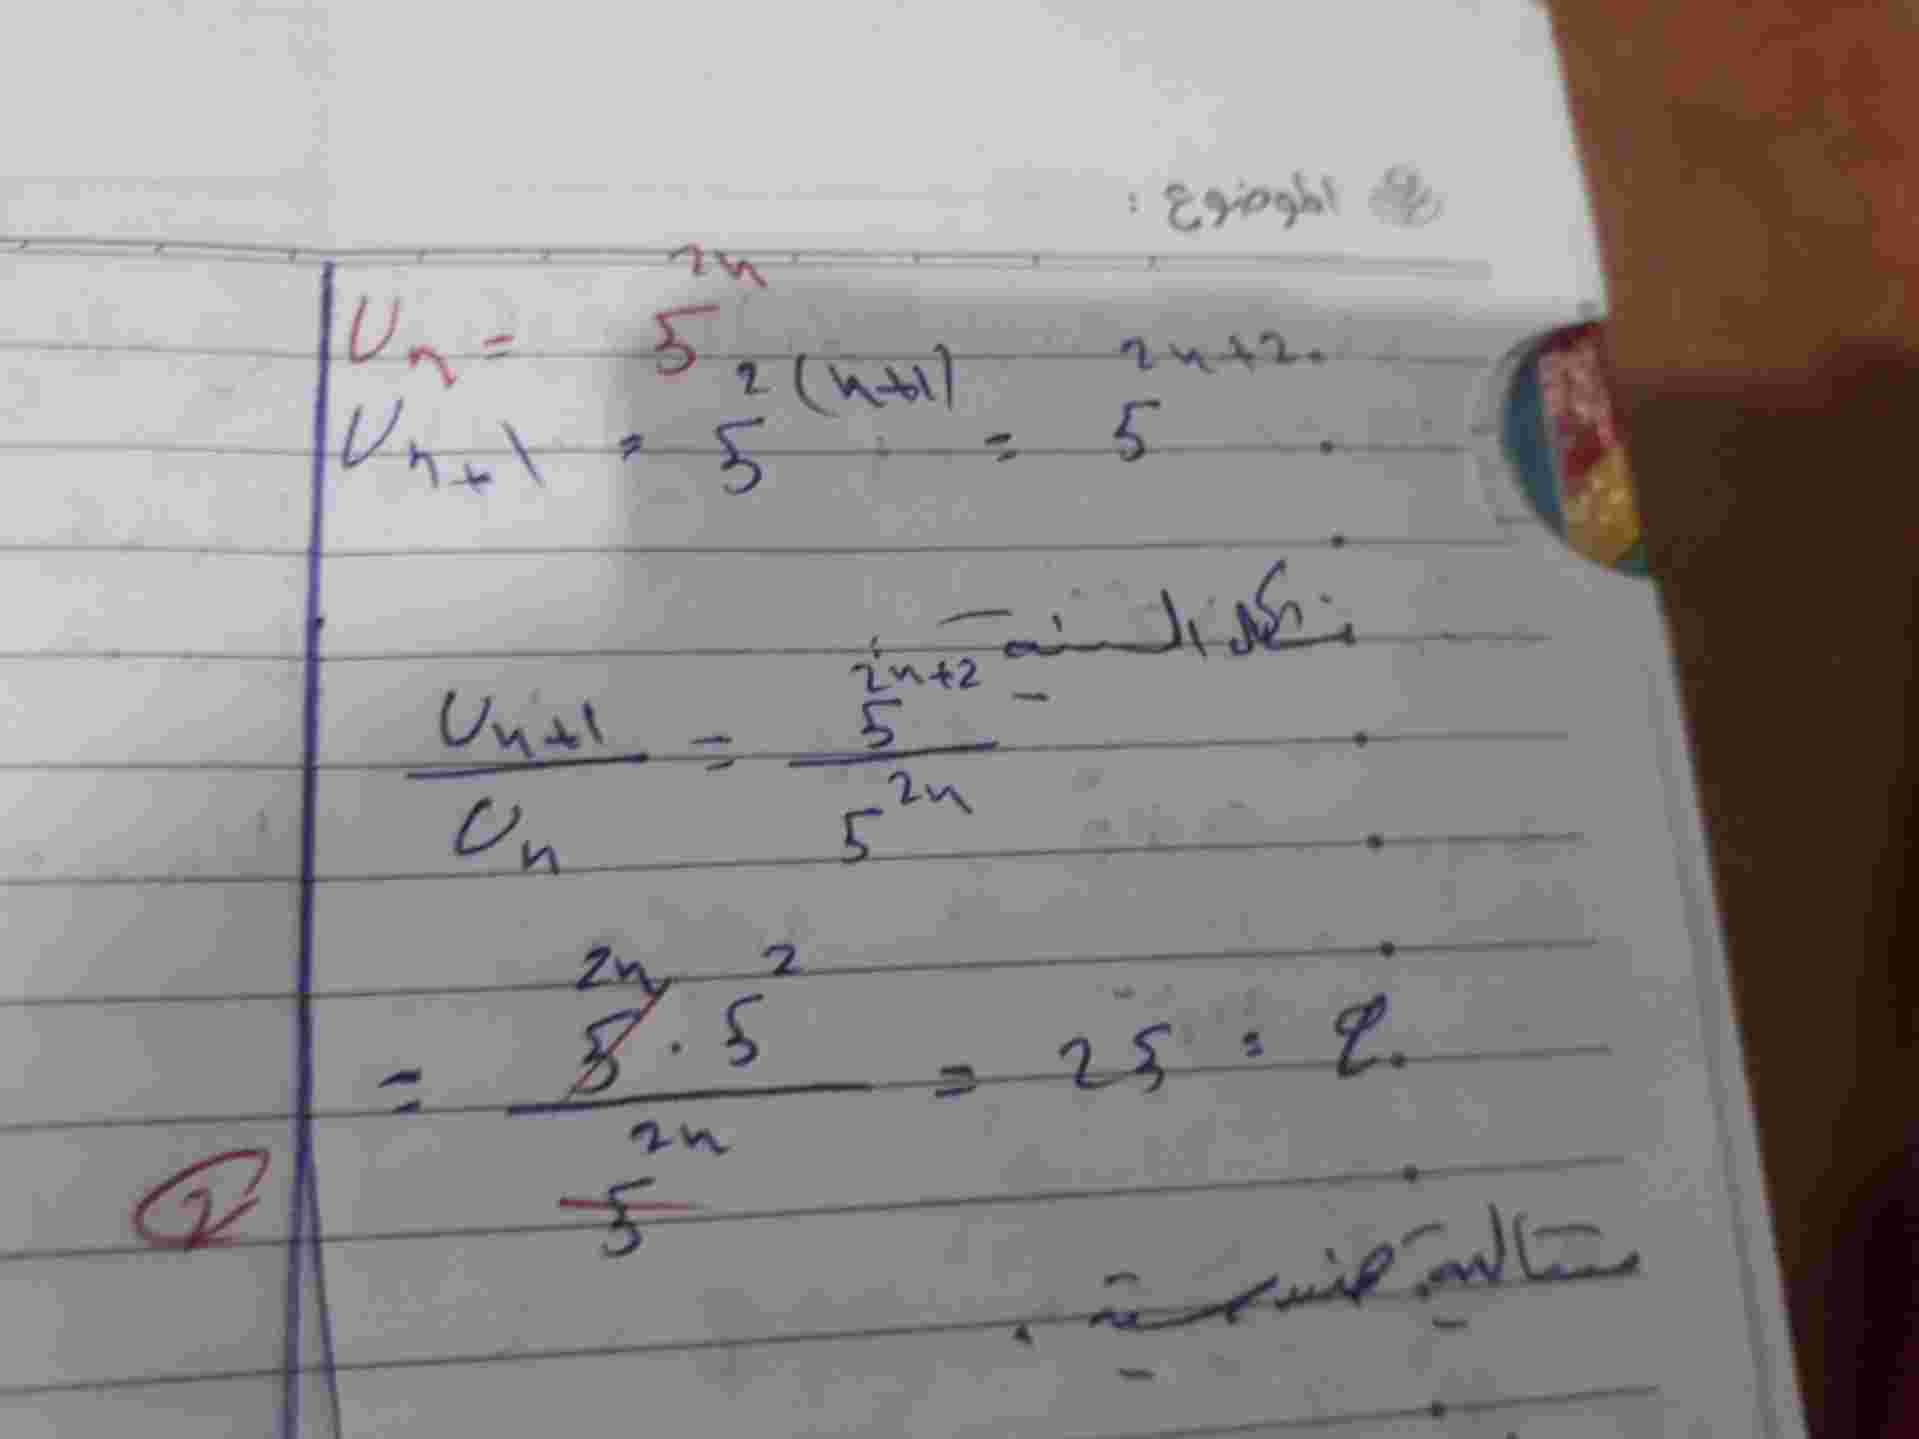 الموضوع :
Uₙ = 5²ⁿ
Uₙ₊₁ = 5²⁽ⁿ⁺¹⁾ = 5²ⁿ⁺² .
نشكل النسبة :
Uₙ₊₁ / Uₙ = 5²ⁿ⁺² / 5²ⁿ
= 5²ⁿ · 5² / 5²ⁿ = 25 = q.
2
متتالية هندسية .